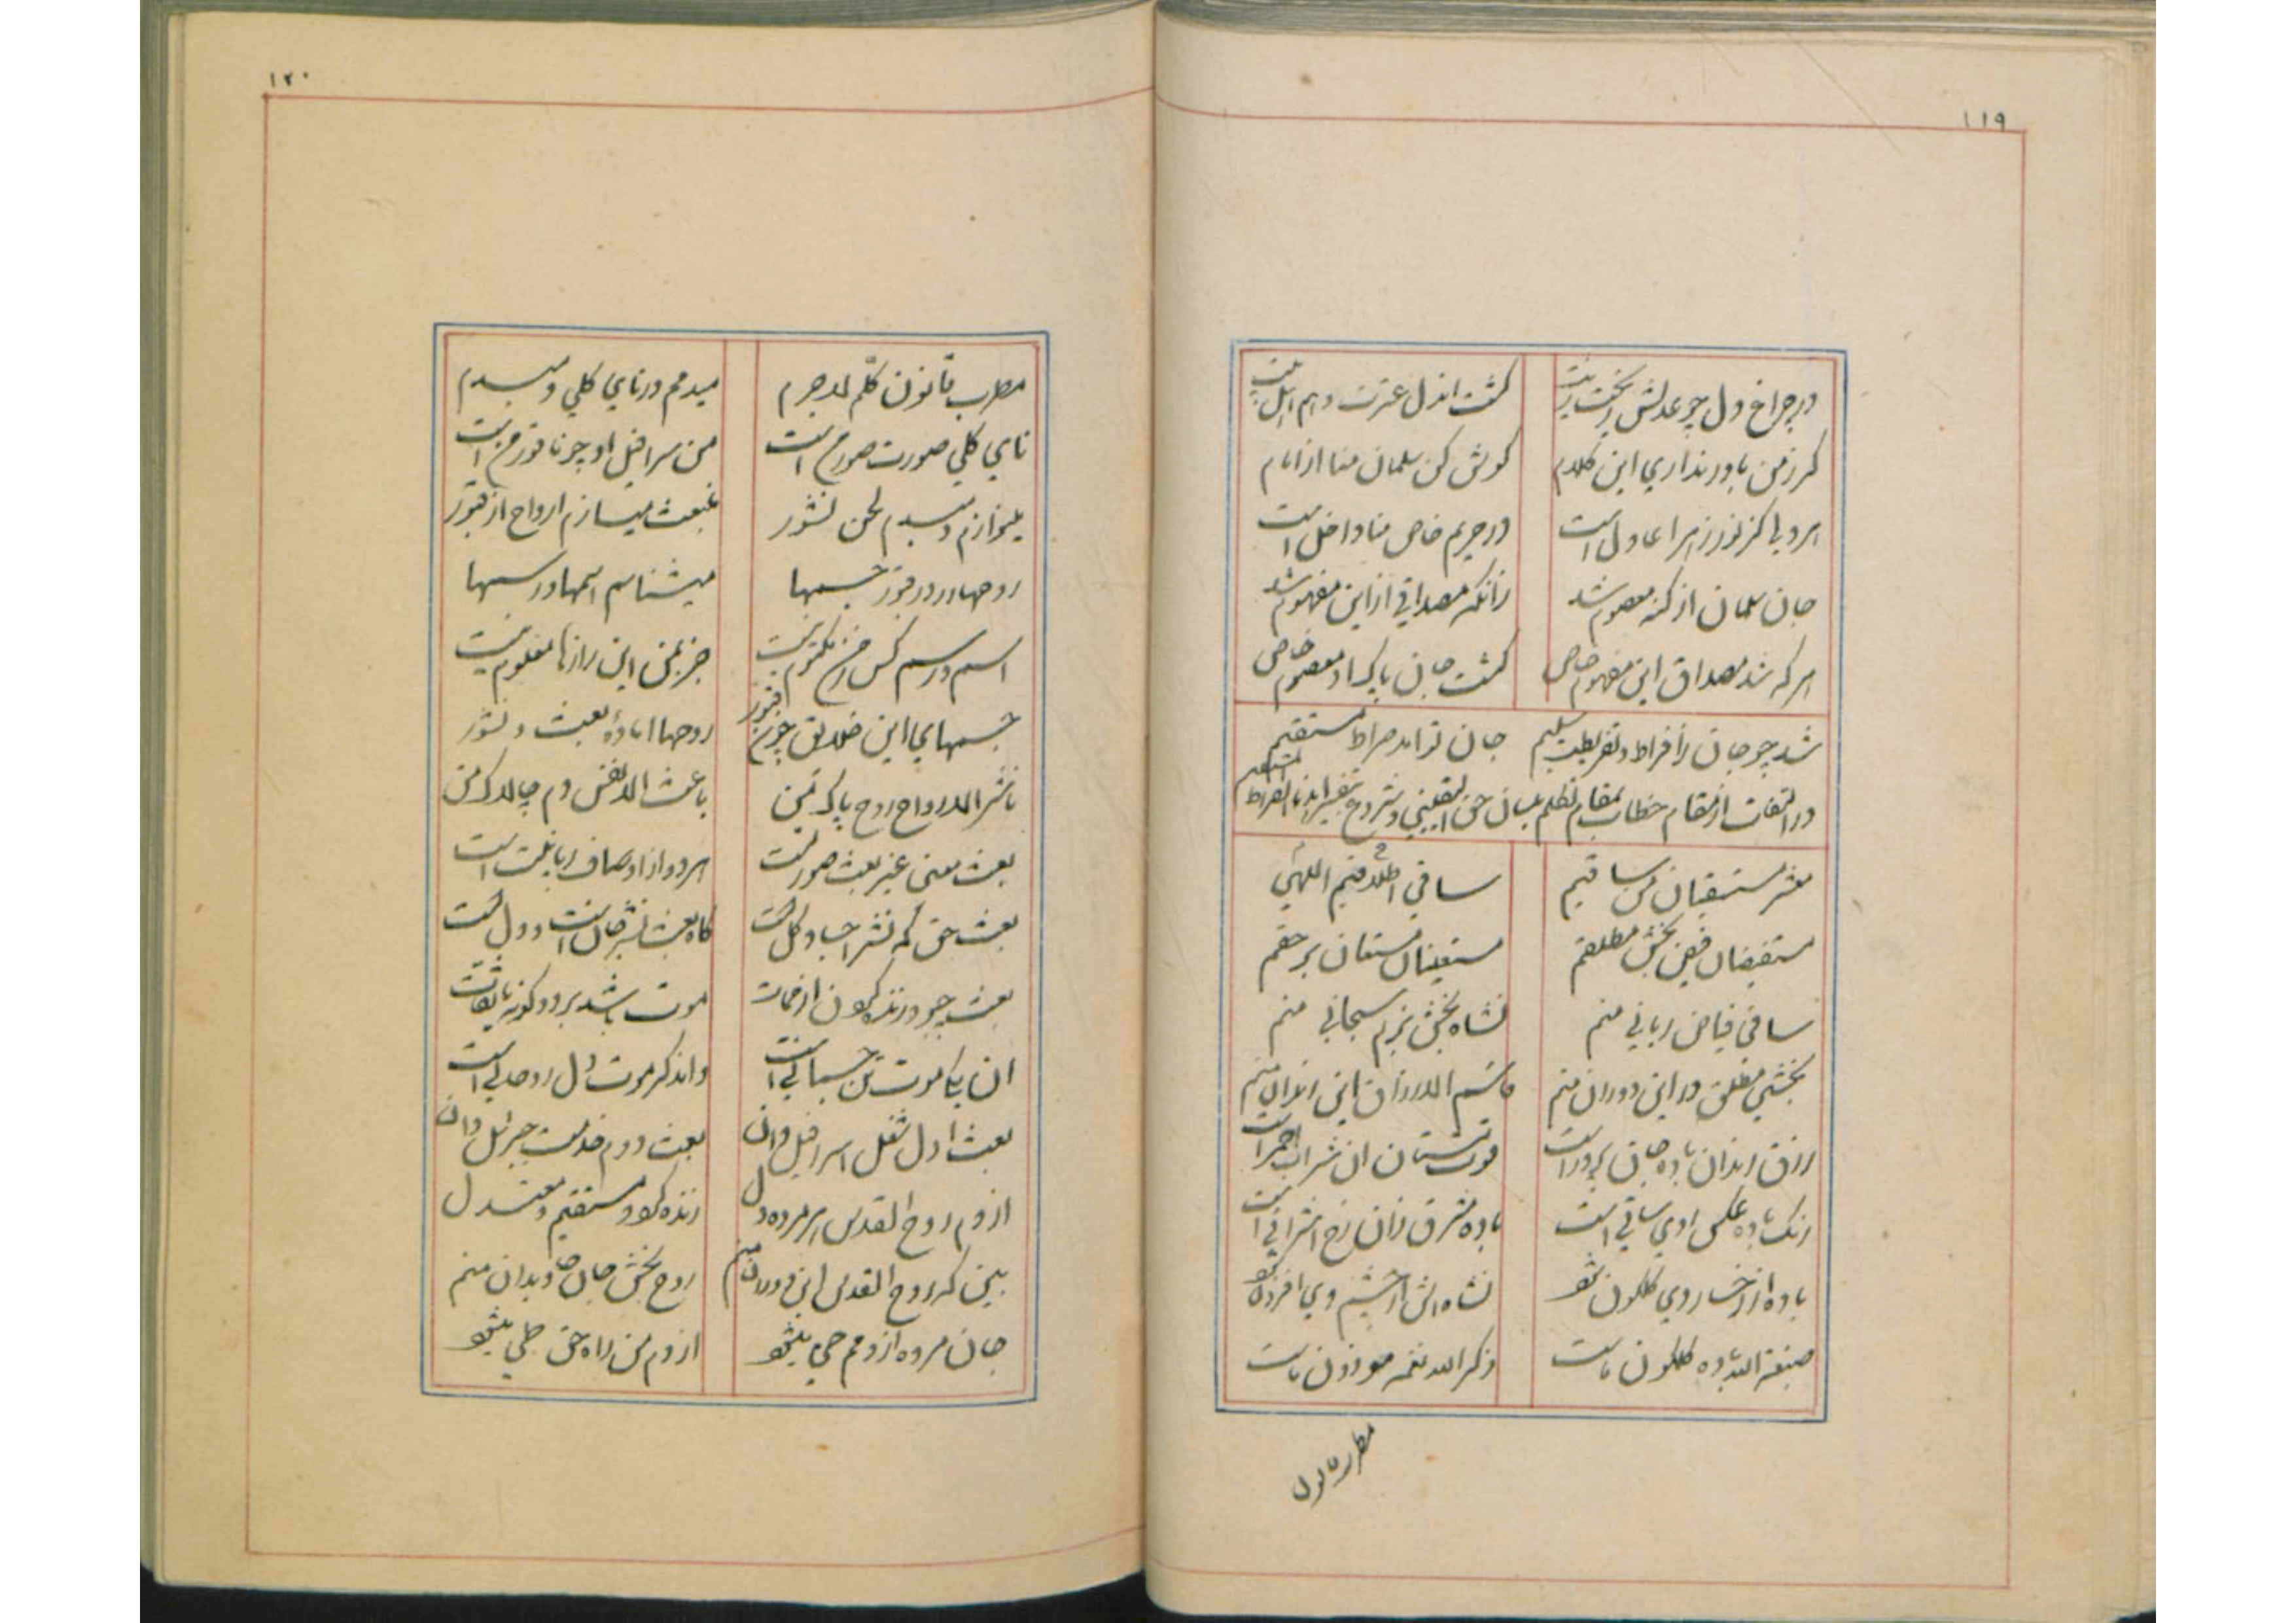 ۱۱۹
در چراغ دل چو عدلش ریخت زیت گشت اندل عترت و هم اهل بیت
کر زمن باور نداری این کلام کوش کن سلمان منا از امام
هر دلی کز نور زهرا عادل است در حریم خاص منا داخل است
جان سلمان از کنه معصوم شد زانکه مصداقی از این مفهوم شد
هر که شد مصداق این مفهوم خاص گشت جان پاک او معصوم خاص
شد چو جان زافراط و تفریطت سلیم جان تو اند صراط مستقیم
در التفات از مقام خطاب بمقام تکلم بلسان حق الیقینی و شروع بتفسیر اهدنا الصراط المستقیم
معشر مستسقیان من ساقیم ساقی اطلاقیم
مستفیضان فیض بخش مطلقم مستعینان مستعان بر حقم
ساقی فیاض ربانی منم نشاه بخش بزم سبحانی منم
بخشی مطلق در این دوران منم قاسم الارزاق این رندان منم
رزق رندان باده جان پرور است قوت مستان ان شراب احمر است
رنک باده عکس روی ساقی است باده مشرق زان رخ اشراقی است
باده از رخسار روی کلکون شو نشاه اش از چشم وی افزون شو
صبغة الله باده کلکون ماست ذکر الله نغمه موزون ماست
۱۲۰
مطرب قانون کلم لاجرم میدمم در نای کلی دمبدم
نای کلی صورت صور من است من سرافیل او چو ناقور من است
مینوازم دمبدم لحن نشور منبعث میسازم ارواح از قبور
روحها در قبور جسمها میشناسم اسمها و رسمها
اسم و رسم کس ز من مکتوم نیست جز بمن این رازها معلوم نیست
جسمهای این خلایق چون قبور روحها امادهٔ بعث و نشور
ناشر الارواح روح پاک من باعث الانفس دم چالاک من
بعث معنی غیر بعث صورتست هر دو از اوصاف رب است
بعث حق که نشر اجساد کلست کاه بعث نشر جانست و دلست
بعث چبود زنده کردن از ممات موت باشد بر دو کونه
ان یکی موت تن جسمانی است واندکر موت دل روحانی است
بعث اول شغل اسرافیل دان بعث دوم خدمت جبرئیل دان
از دم روح القدس هر مرده دل زنده کردد مستقیم و معتدل
بین که روح القدس این دوران منم روح بخش جان جاویدان منم
جان مرده از دمم حی میشو از دم من راه حق طی میشو